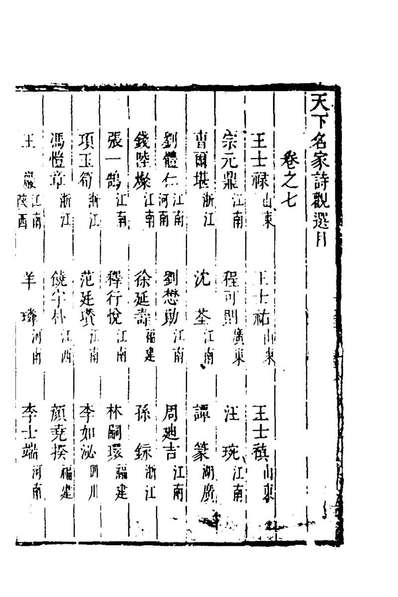 天下名家詩觀選目
卷之七
王士祿山東 王士祐山東 王士禛山東
宗元鼎江南 程可則廣東 汪琬江南
曹爾堪浙江 沈荃江南 譚篆湖廣
劉體仁河南 劉懋勛江南 周廸吉江南
錢陸燦江南 徐延壽福建 孫鍭浙江
張一鵠江南 釋行悅江南 林嗣環福建
項玉筍浙江 范廷瓚江南 李如泌四川
馮愷章浙江 饒宇朴江西 顏堯揆福建
王巖江南陝西 羊璘河南 李士端河南